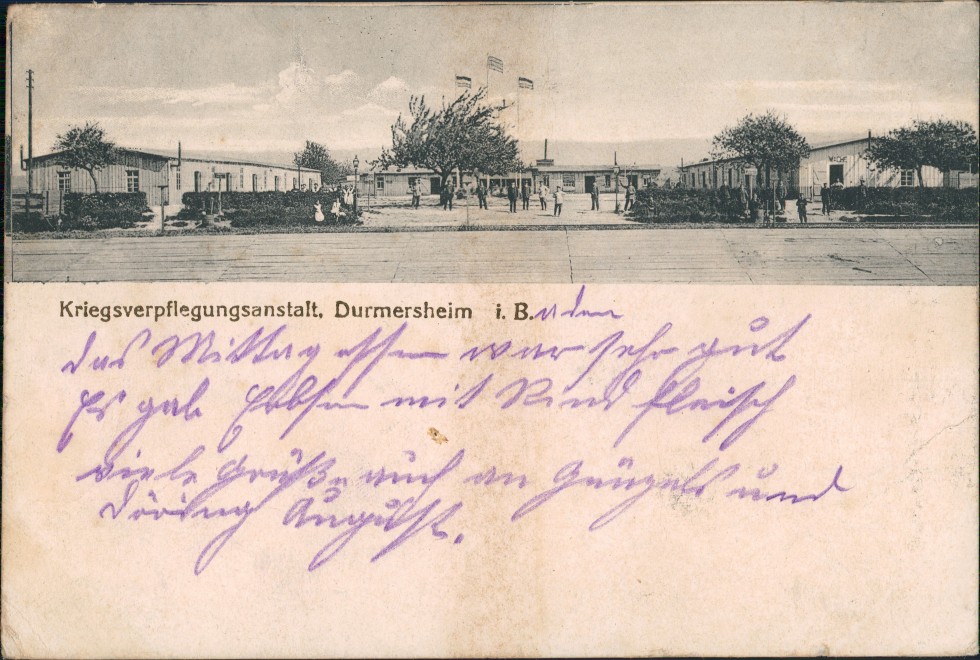 WACHE
Kriegsverpflegungsanstalt, Durmersheim i. B.aden
das Mittag essen war sehr gut
Es gab Erbsen mit Rind fleisch
viele Grüße auch an Günzels und
Döring August.